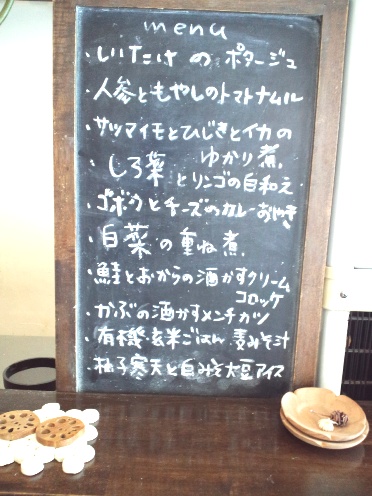 menu
・しいたけ の ポタージュ
・人参ともやしのトマトナムル
・サツマイモとひじきとイカの
ゆかり煮
・しろ菜
とリンゴの白和え
・ゴボウとチーズのカレーおやき
・白菜 の 重ね煮
・鮭とおからの酒かすクリーム
コロッケ
・かぶの酒かすメンチカツ
・有機・玄米ごはん 麦みそ汁
・柚子寒天と白みそ大豆アイス